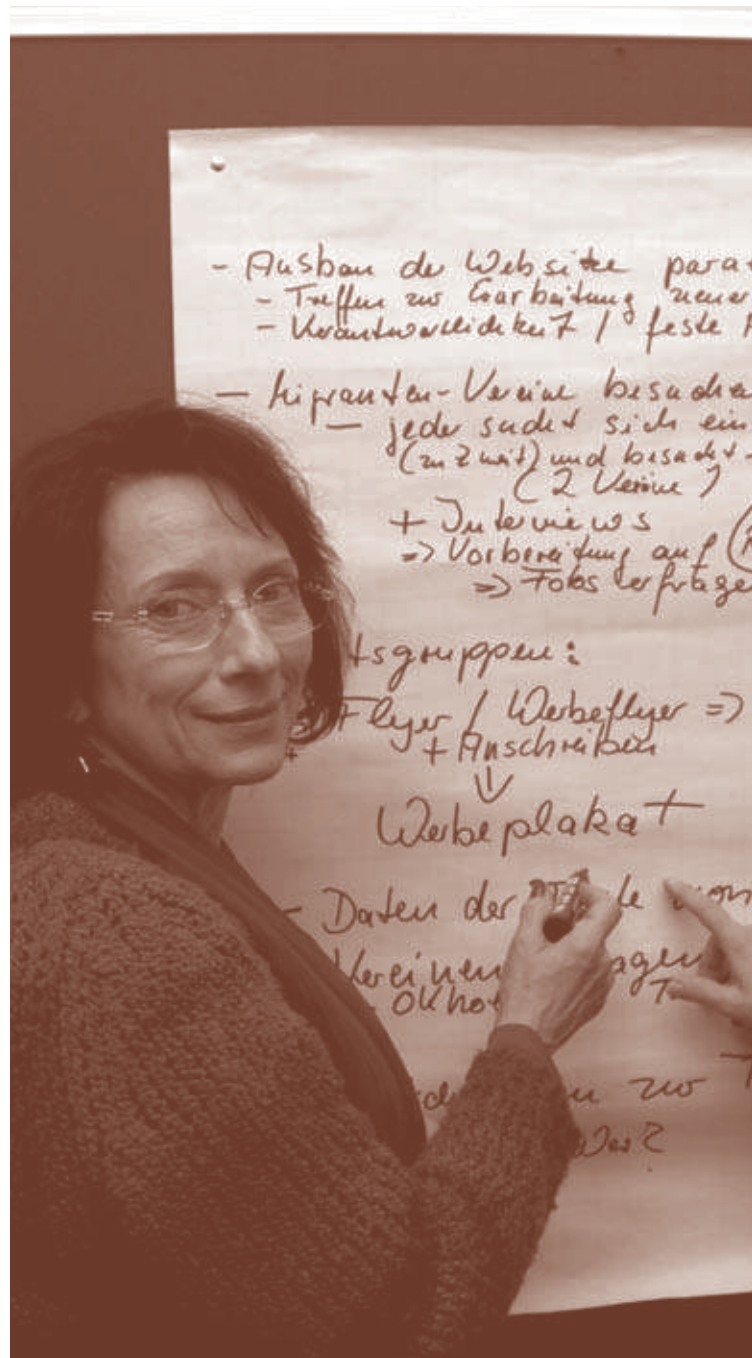 - Ausbau der Website para
- Treffen zur Erarbeitung neuer
- Verantwortlichkeit / feste
- Migranten-Vereine besuche
- jeder sucht sich ein
(zu zweit) und besucht
(2 Vereine)
+ Interviews
=> Vorbereitung auf
=> Fotos erfragen
tsgruppen:
Flyer / Werbeflyer =>
+ Anschreiben
Werbeplakat
- Daten der
Vereinen
zur T
Wer?